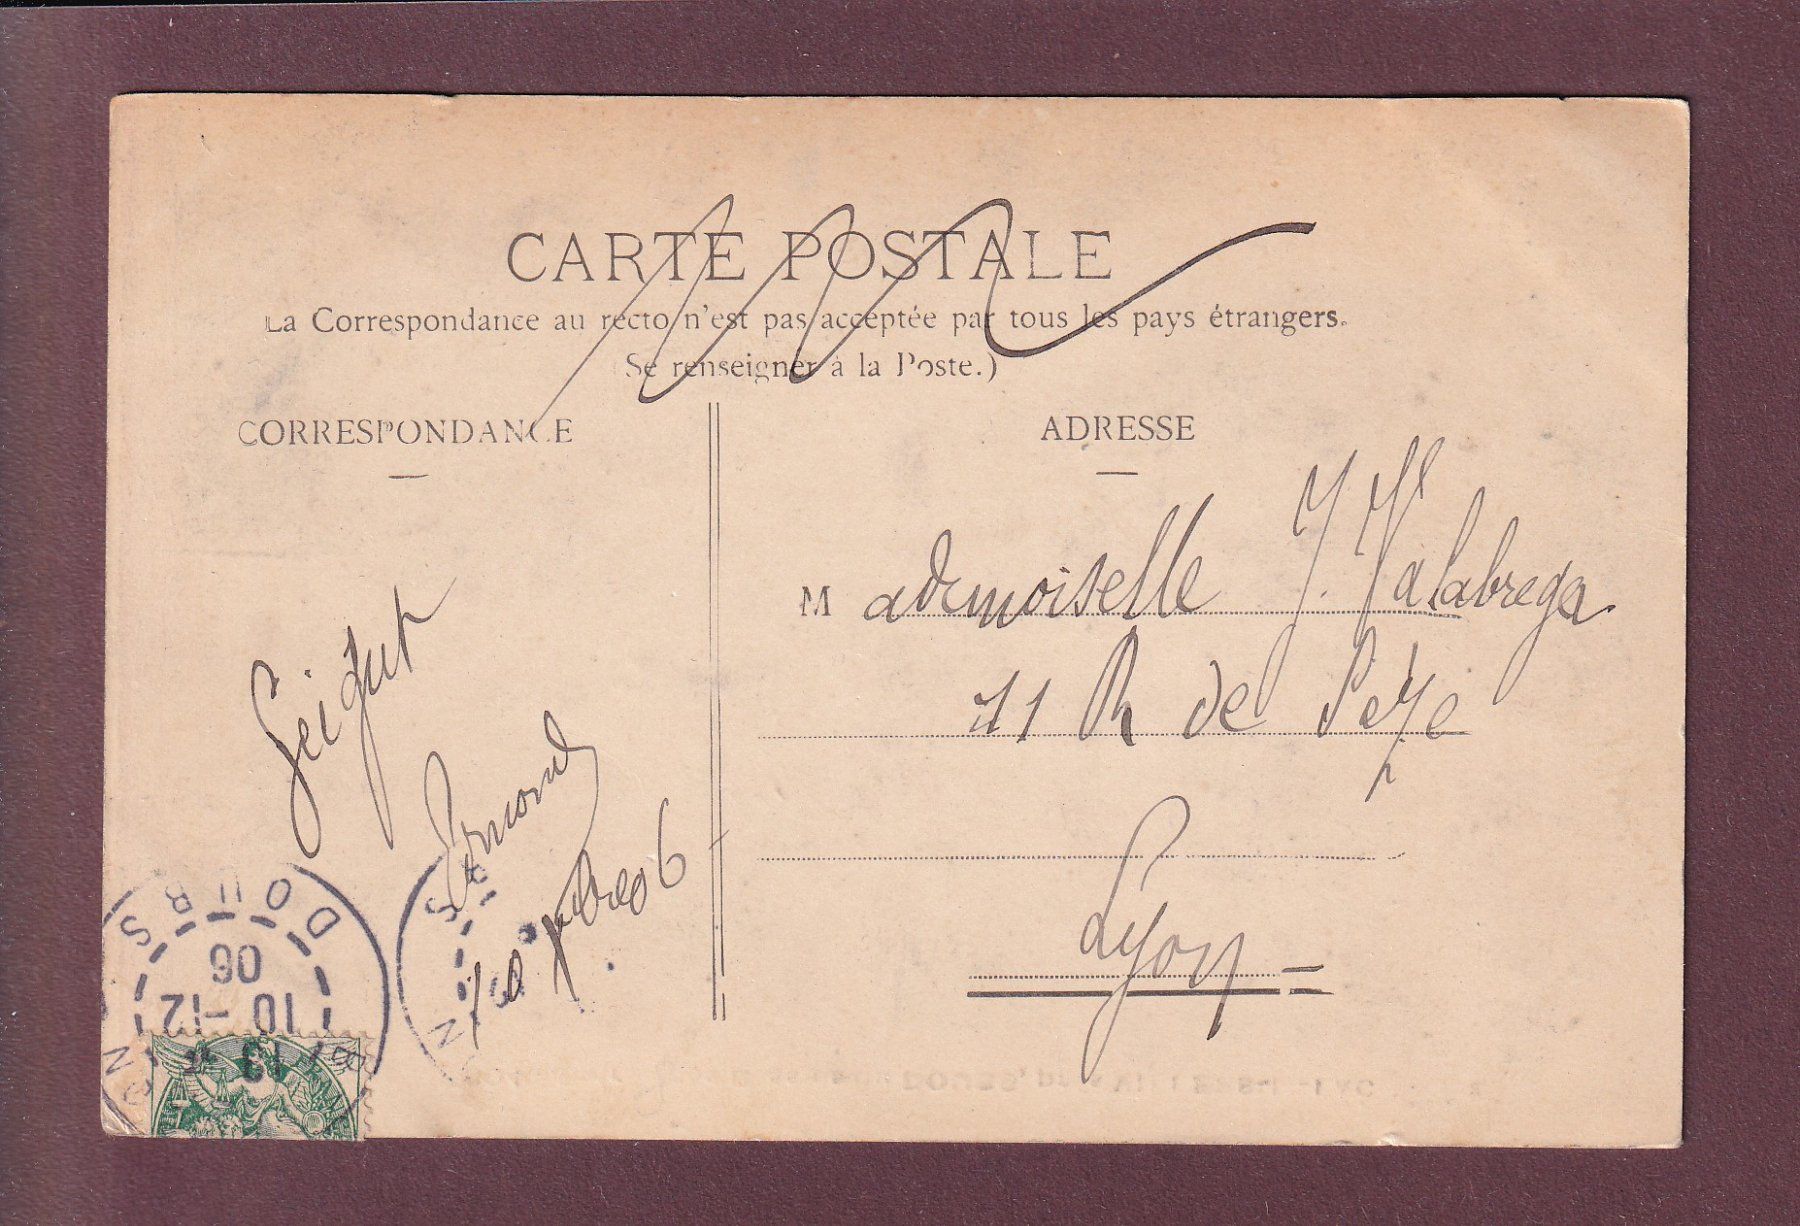 CARTE POSTALE
La Correspondance au recto n'est pas acceptée par tous les pays étrangers.
Se renseigner à la Poste.)
CORRESPONDANCE
ADRESSE
Mademoiselle J. Malabrega
11 R de Sèze
Lyon
10 xbre 06
BOURG
10 - 12
06